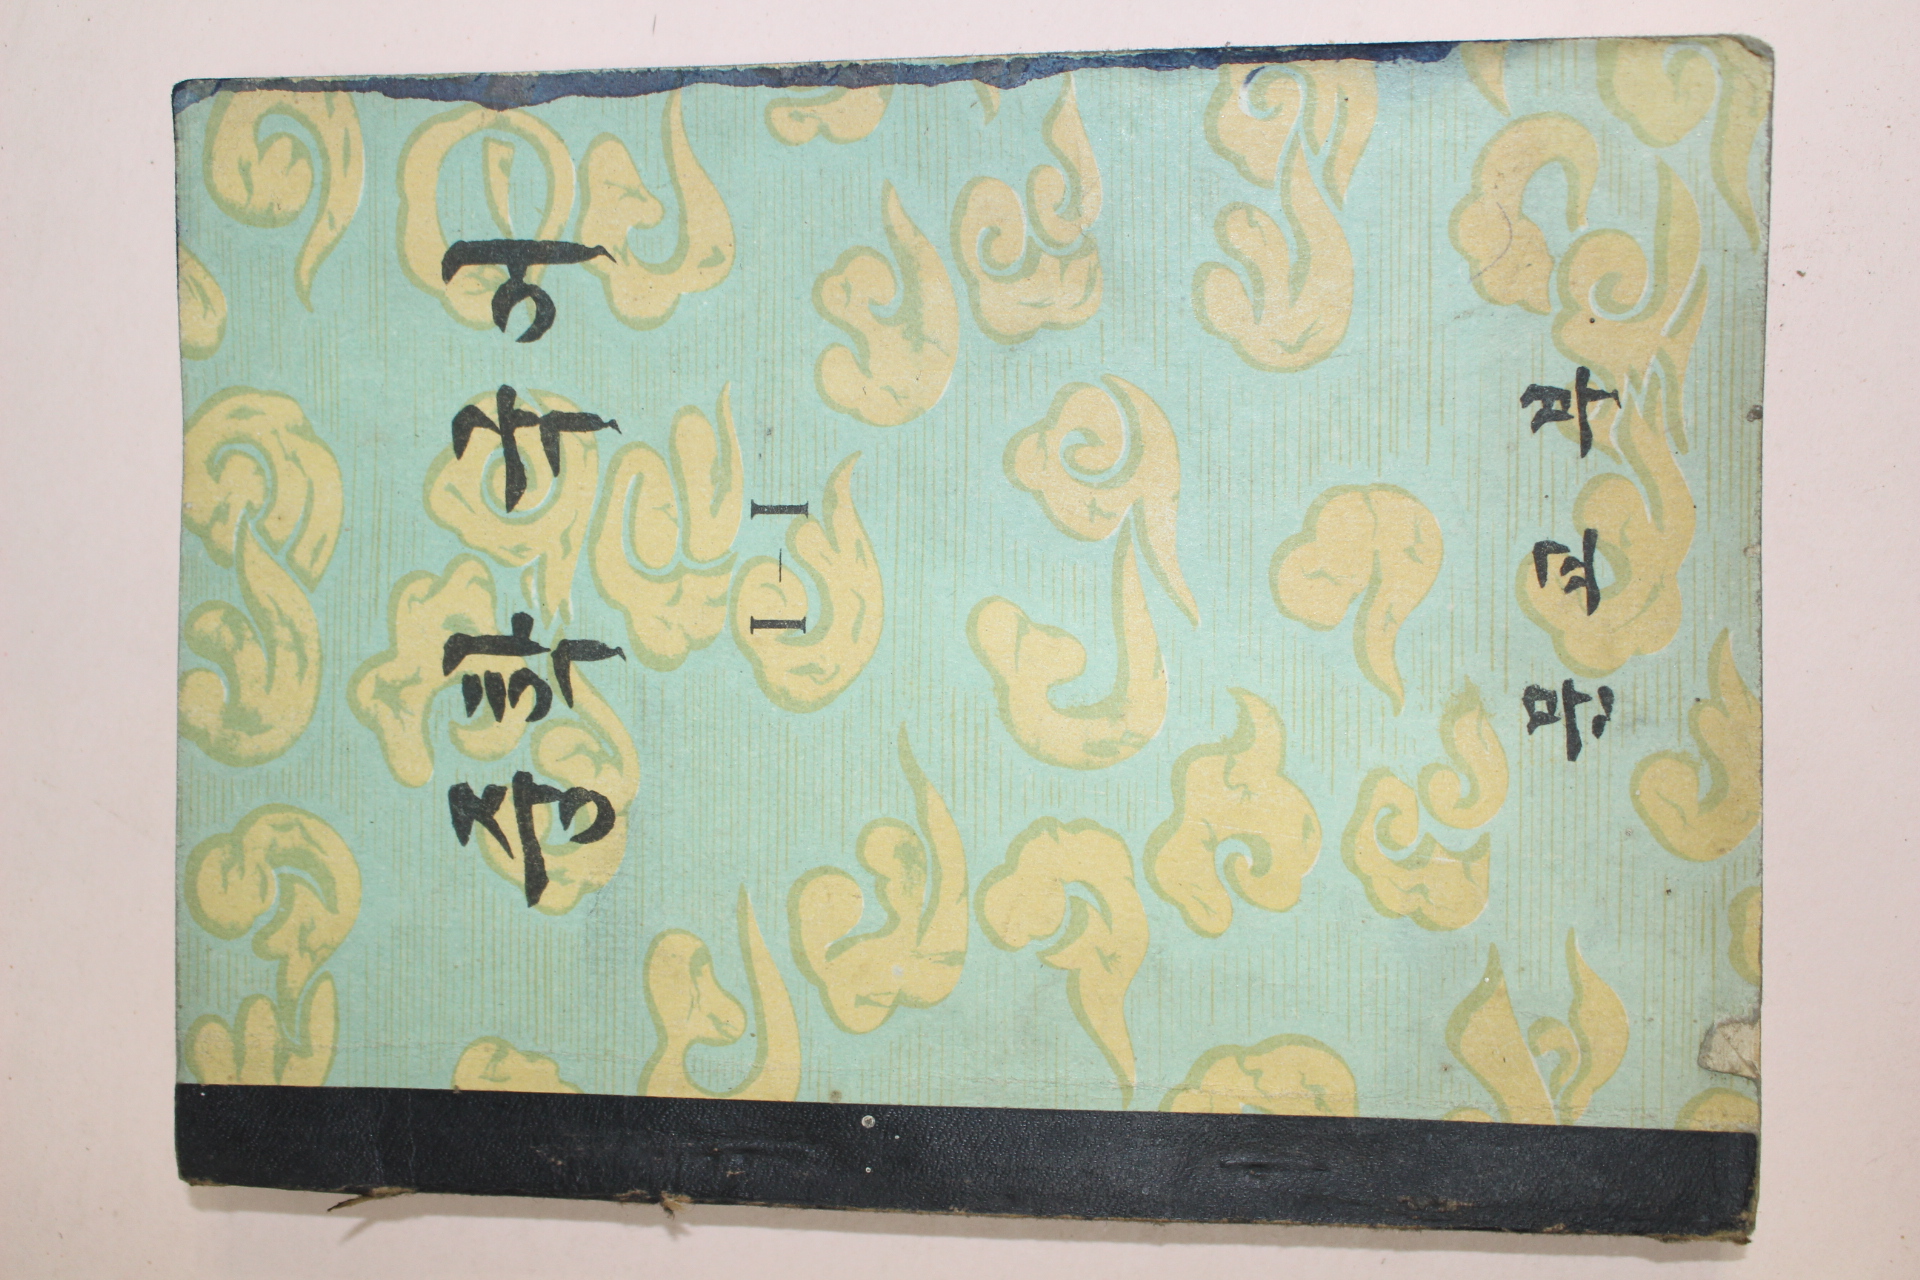 중학 국어
I - I
문교부